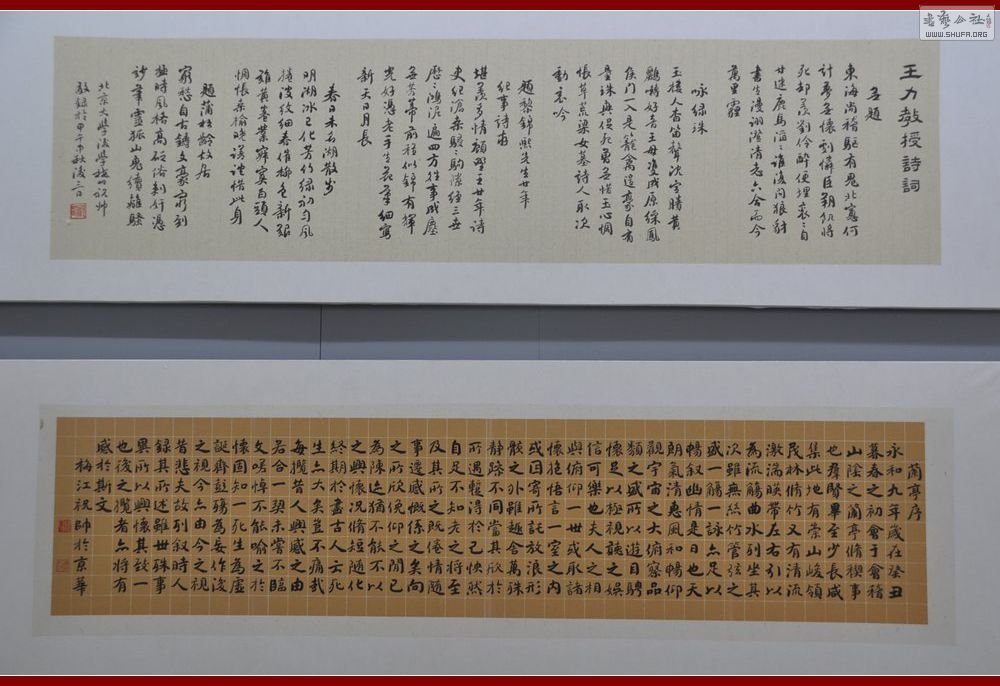 王力教授詩詞
無題
東海尚稽驅有鬼北窗何
計夢無懷到儔臣朔飢將
死却羡劉伶醉便埋衮衮自
甘迷鹿馬滔滔誰復問狼豺
書生漫詡澄清志六合而今
萬里霾
咏绿珠
玉樓人杳笛聲沈
鸚鵡好音王母
侯門一入是籠禽遺
量珠與
悵草荒梁女墓詩人取次
動哀吟
題黎錦熙先生廿年
紀事詩存
堪羨多情願
廿年詩
史紀滄桑
歷歷鴻泥遍四方往事成塵
前程似錦有輝
光好憑老手生花筆細寫
新天日月長
春日未名湖散步
明湖冰已化芳竹绿初勻風
捲波紋細春催柳色新
惆悵桑榆晚
惜此身
題蒲松齡故居
窮愁自古鑄文豪
風格高
靈狐山鬼續離騷
北京大學
祝帥
敬錄於甲午中秋後三日
蘭亭序
永和九年歲在癸丑
暮春之初會于會稽
山陰之蘭亭脩禊事
也羣賢畢至少長咸
集此地有崇山峻領
茂林脩竹又有清流
激湍暎帶左右引以
為流觴曲水列坐其
次雖無絲竹管弦之
盛一觴一詠亦足以
暢叙幽情是日也天
朗氣清惠風和暢仰
觀宇宙之大俯察品
類之盛所以遊目騁
懷足以極視聽之娛
信可樂也夫人之相
與俯仰一世或取諸
懷抱悟言一室之內
或因寄所託放浪形
骸之外雖趣舍萬殊
靜躁不同當其欣於
所遇蹔得於己怏然
自足不知老之將至
及其所之既倦情隨
事遷感慨係之矣向
之所欣俛仰之間已
為陳迹猶不能不以
之興懷況脩短隨化
終期於盡古人云死
生亦大矣豈不痛哉
每攬昔人興感之由
若合一契未嘗不臨
文嗟悼不能喻之於
懷固知一死生為虛
誕齊彭殤為妄作後
之視今亦由今之視
昔悲夫故列叙時人
錄其所述雖世殊事
異所以興懷其致一
也後之攬者亦將有
感於斯文
梅江祝帥於京華
書藝公社
WWW.SHUFA.ORG